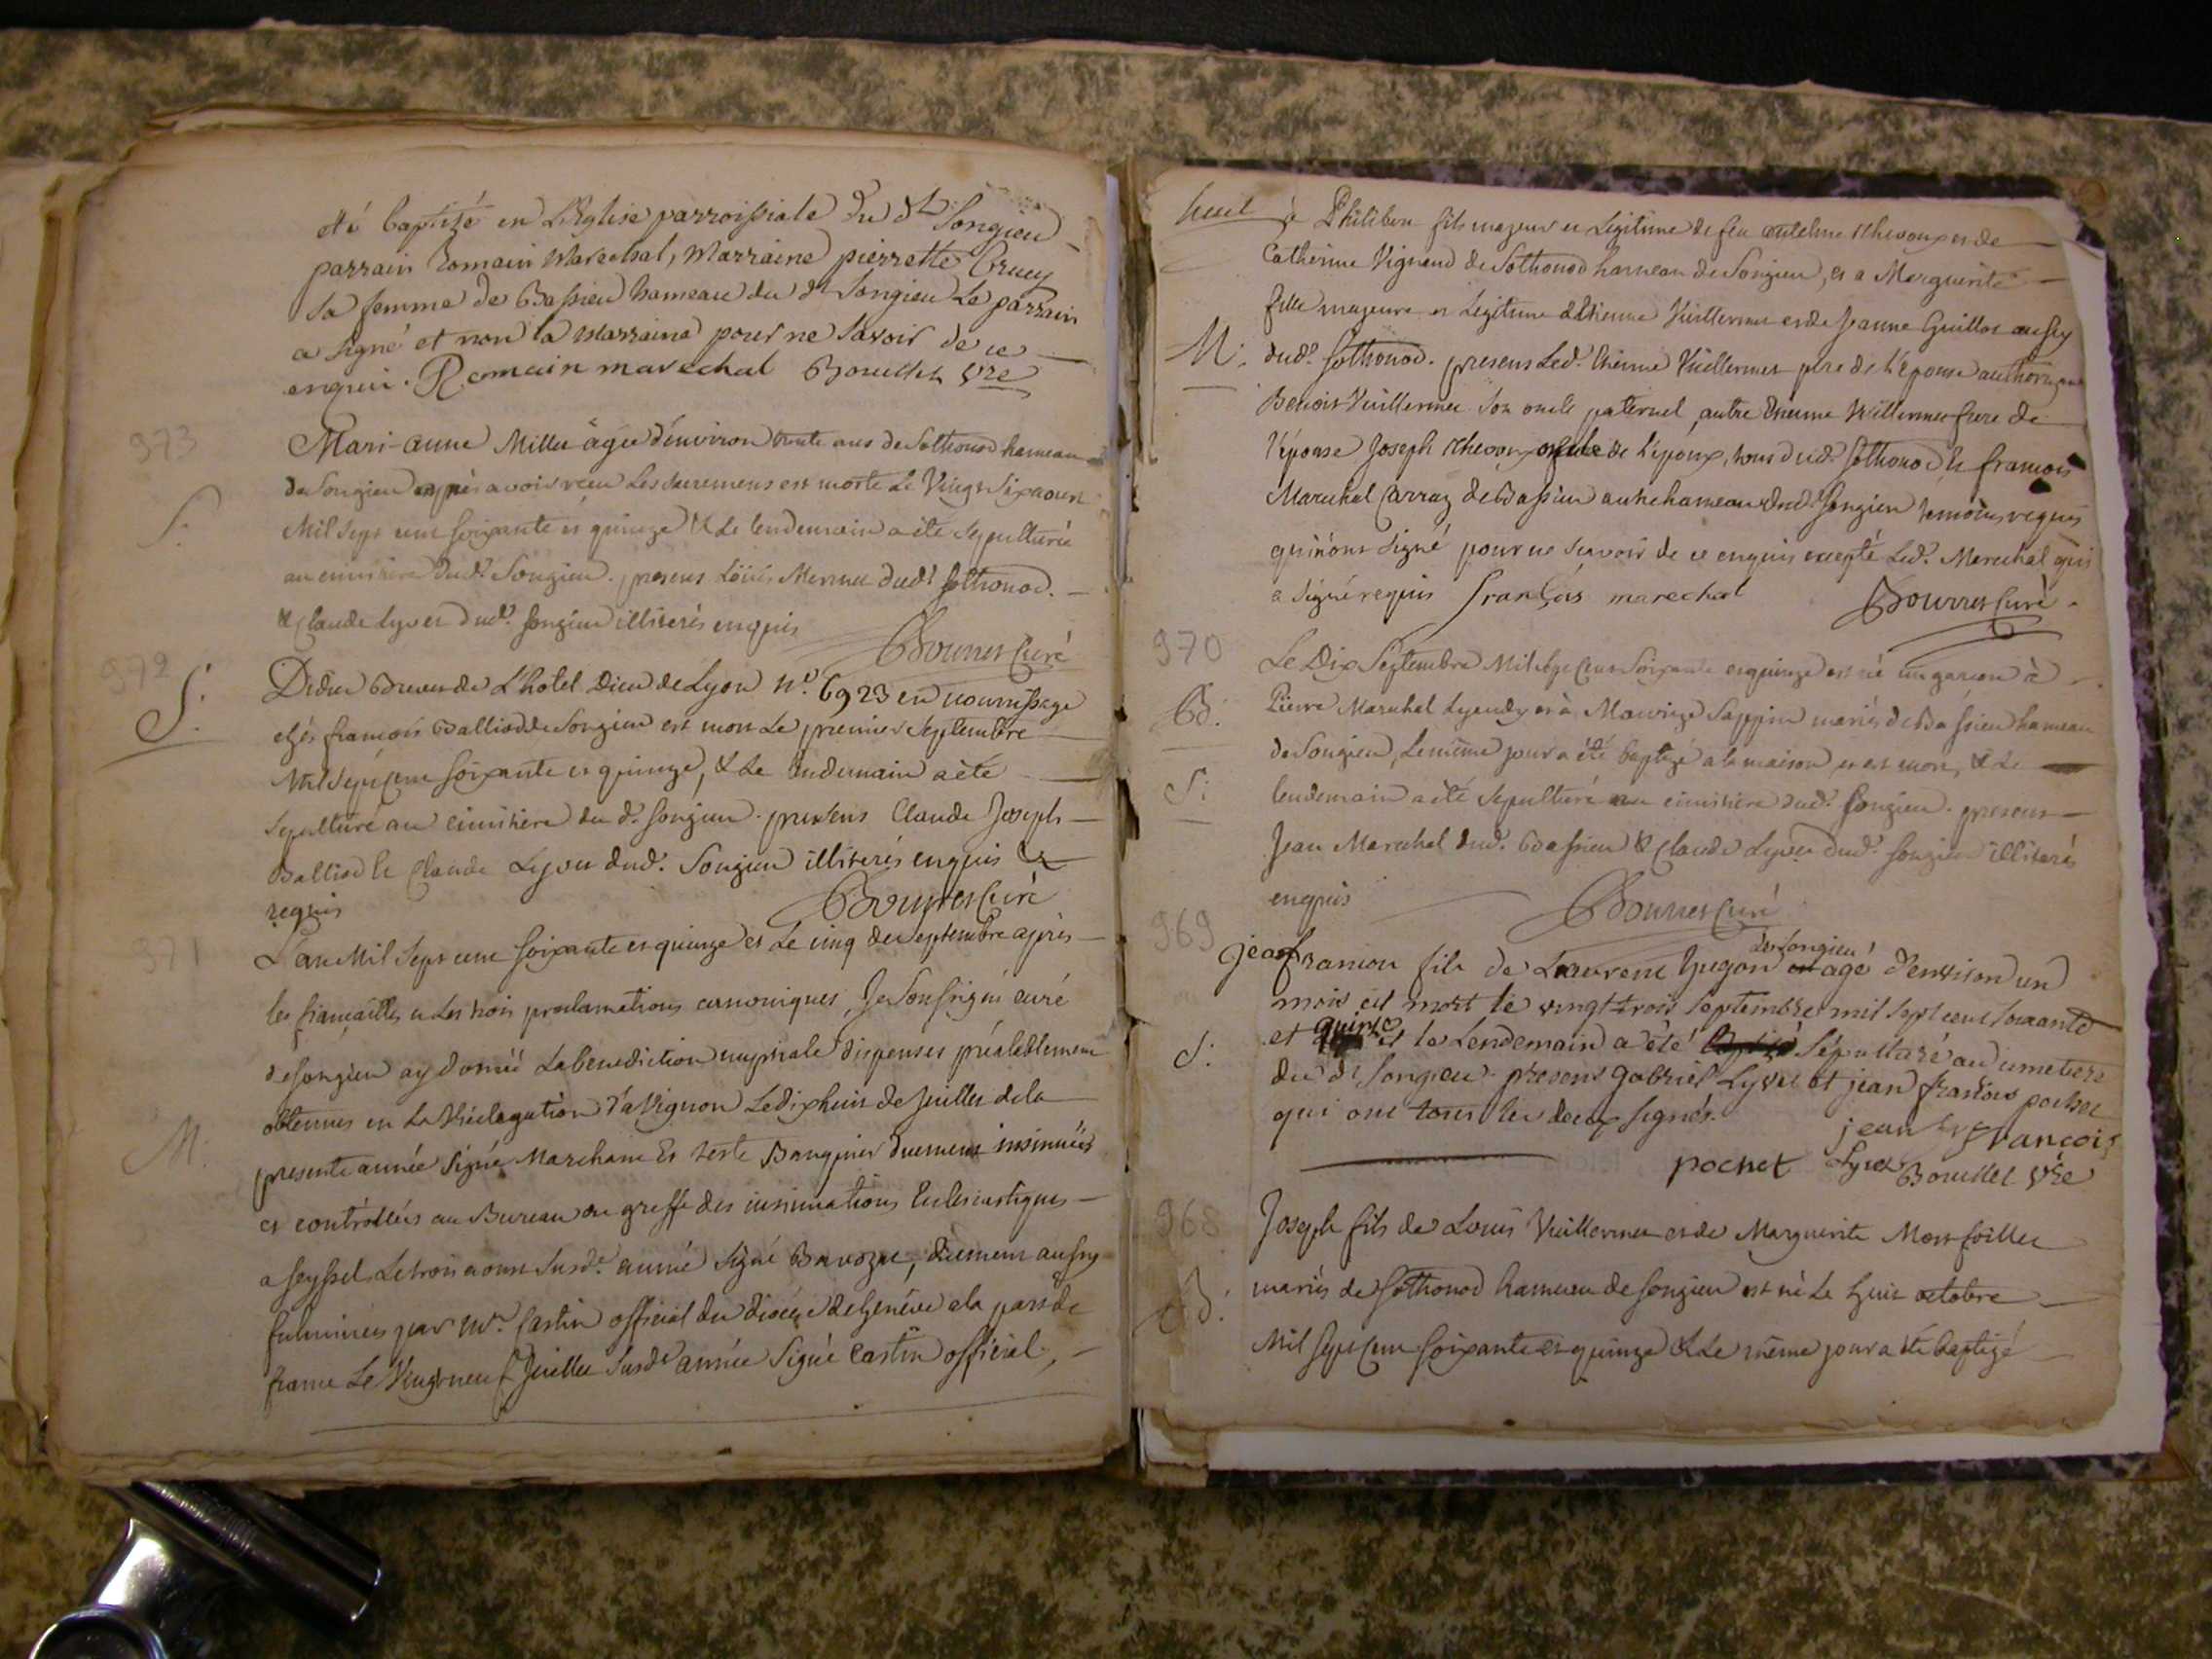 été baptisé en L'Eglise parroissiale du dt Songieu
parrain Romain Marechal, Marraine pierrette Cruey
Sa femme de Bassieu hameau du dt Songieu Le parrain
a signé et non la Marraine pour ne Savoir de ce
enquis. Romain marechal Bouillet Vre
973
Mari-anne Millet agée d'environ trente ans de Sothonod hameau
de Songieu après avoir reçu Les Sacremens est morte Le Vingt Six aoust
S.
Mil Sept cent soixante et quinze & Le lendemain a été Sepulturée
au cimetiere dud. Songieu. presens Loüis Mermet dud. Sothonod.
& Claude Lyvet dud. Songieu illiterés enquis
Bourret Curé
972
S.
Didier de L'hotel Dieu de Lyon n°. 6923 en nourrissage
chés françois Balliod de Songieu est mort Le premier Septembre
Mil Sept Cent soixante et quinze, & Le lendemain a été
Sepulturé au cimitiere du d. Songieu. presens Claude Joseph
Balliod & Claude Lyvet dud. Songieu illiterés enquis &
requis
Bourret Curé
971
L'an Mil Sept cent soixante et quinze et Le cinq de Septembre après
les fiançailles et Les trois proclamations canoniques, Je Soussigné curé
de Songieu ay donné La benediction nuptiale dispenses préalablement
obtenues en La Vicelegation d'aVignon Le dix huit de Juillet de la
M.
presente année Signé Marchant Et teste Banquier duement insinuées
et contrôllées au Bureau ou greffe des insinuations Ecclesiastiques
a Seyssel Le trois aoust Susde. année Signé Bavozat, duement aussy
fulminées par Mr. Castin official du diocèse de Genève a la part de
france Le Vingt neuf Juillet Susde année Signé Castin official,
à Philibert fils majeur et Légitime de feu antelme thevoux et de
Catherine Vignand de Sothonod hameau de Songieu, et a Marguerite
fille majeure et Legitime d'Etienne Vuillermet et de Jeanne Guillot aussy
M.
dud. Sothonod. presens Led. Etienne Vuillermet pere de L'épouse
Benoit Vuillermet Son oncle paternel, autre Etienne Vuillermet frere de
l'épouse Joseph thevoux oncle de l'époux, tous dud. Sothonod & françois
Marechal Carraz de Bassieu autre hameau dud. Songieu temoins requis
qui n'ont Signé pour ne Scavoir de ce enquis excepté Led. Marechal qui
a Signé requis françois marechal Bourret Curé.
970
Le Dix Septembre Mil Sept Cent Soixante et quinze est né un garcon à
B.
Pierre Marechal Lyaudy et à Maurize Sappin mariés de Bassieu hameau
de Songieu, Le même jour a été baptizé a la maison et est mort, & Le
S.
lendemain a été Sepulturé au cimitière dud. Songieu. presens
Jean Marechal dud. Bassieu & Claude Lyvet dud. Songieu illiterés
enquis
Bourret Curé
969
de Songieu
jeafranion fils de Laurent hugon agé d'environ un
mois est mort le vingt trois Septembre mil Sept cent Soixante
et quinze et le Lendemain a été Sépulturé au cimetiere
S.
du dt Songieu. presens gabriel Lyvet et jean françois pochet
qui ont tous les deux signés.
jean françois
pochet Lyvet Bouillet Vre
968
Joseph fils de Louis Vuillermet et de Marguerite Montfoillet
B.
mariés de Sothonod hameau de Songieu est né Le huit octobre
Mil Sept Cent Soixante et quinze & Le même jour a été baptizé